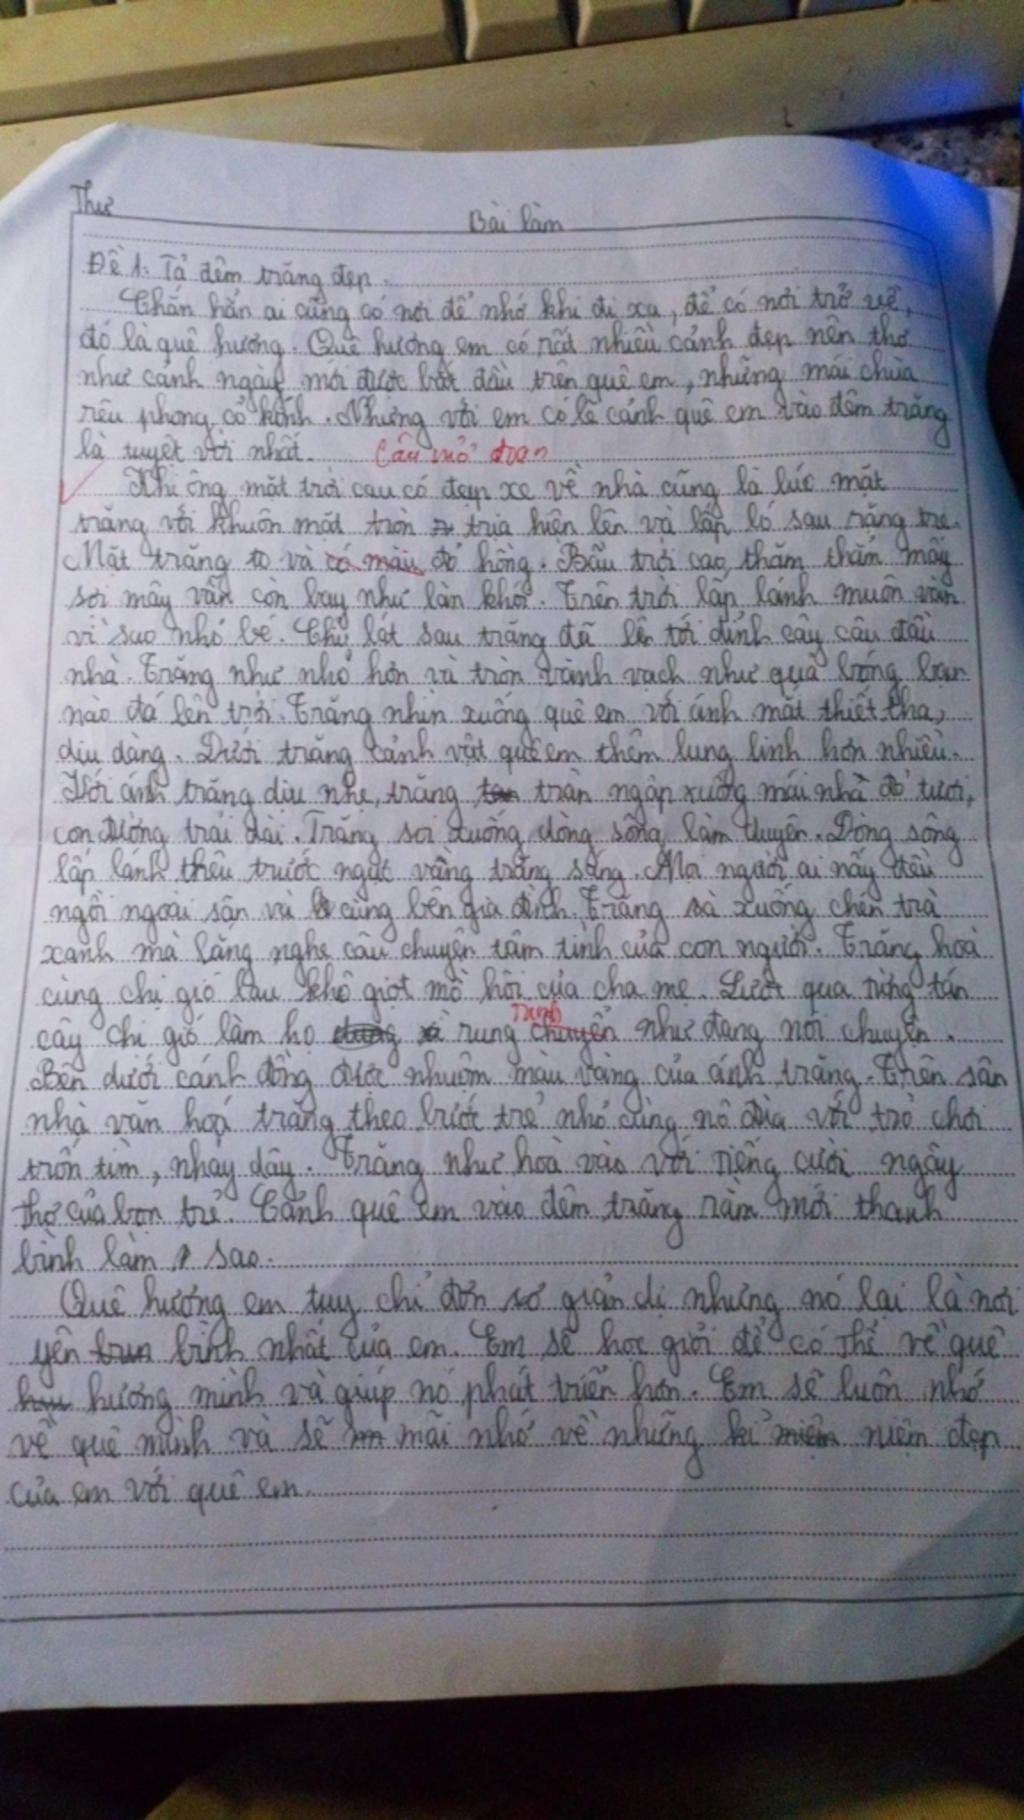 Thư
Bài làm
Đề 1: Tả đêm trăng đẹp.
Chắn hẳn ai cũng có nơi để nhớ khi đi xa, để có nơi trở về,
đó là quê hương. Quê hương em có rất nhiều cảnh đẹp nên thơ
như cảnh ngày mới được bắt đầu trên quê em, những mái chùa
rêu phong cổ kính. Nhưng với em có lẽ cảnh quê em vào đêm trăng
là tuyệt vời nhất. Câu mở đoạn
Khi ông mặt trời cau có đạp xe về nhà cũng là lúc mặt
trăng với khuôn mặt tròn trịa hiện lên và lấp ló sau rặng tre.
Mặt trăng to và có màu đỏ hồng. Bầu trời cao thăm thẳm mấy
sợi mây vẫn còn bay như làn khói. Trên trời lấp lánh muôn vàn
vì sao nhỏ bé. Chỉ lát sau trăng đã lên tới đỉnh cây cau đầu
nhà. Trăng như nhỏ hơn và tròn vành vạch như quả bóng bạn
nào đá lên trời. Trăng nhìn xuống quê em với ánh mắt thiết tha,
dịu dàng. Dưới trăng cảnh vật quê em thêm lung linh hơn nhiều.
Với ánh trăng dịu nhẹ, trăng tràn ngập xuống mái nhà đỏ tươi,
con đường trải dài. Trăng soi xuống dòng sông làm duyên. Dòng sông
lấp lánh thêu trướt ngạt vầng trăng sáng. Mọi người ai nấy đều
ngồi ngoài sân và cùng bên gia đình. Trăng sà xuống chén trà
xanh mà lắng nghe câu chuyện tâm tình của con người. Trăng hoà
cùng chị gió lau khô giọt mồ hôi của cha mẹ. Lướt qua từng tán
cây chị gió làm họ rung chuyển như đang nói chuyện.
Bên dưới cánh đồng được nhuộm màu vàng của ánh trăng. Trên sân
nhà văn hoá trăng theo bước trẻ nhỏ cùng nô đùa với trò chơi
trốn tìm, nhảy dây. Trăng như hoà vào với tiếng cười ngây
thơ của bọn trẻ. Cảnh quê em vào đêm trăng rằm mới thanh
bình làm sao.
Quê hương em tuy chỉ đơn sơ giản dị nhưng nó lại là nơi
yên bình nhất của em. Em sẽ học giỏi để có thể về quê
hương mình và giúp nó phát triển hơn. Em sẽ luôn nhớ
về quê mình và sẽ mãi nhớ về những kỉ niệm đẹp
của em với quê em.